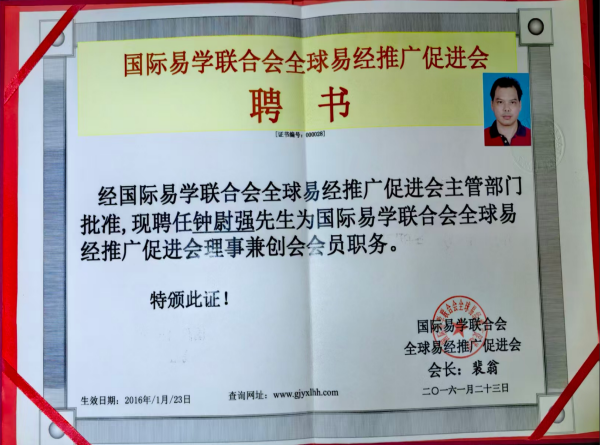 国际易学联合会全球易经推广促进会
聘 书
[证书编号：000028]
经国际易学联合会全球易经推广促进会主管部门
批准,现聘任钟尉强先生为国际易学联合会全球易
经推广促进会理事兼创会会员职务。
特颁此证！
国际易学联合会
全球易经推广促进会
会长：裴翁
生效日期：2016年/1月/23日
查询网址：www.gjyxlhh.com
二〇一六年一月二十三日